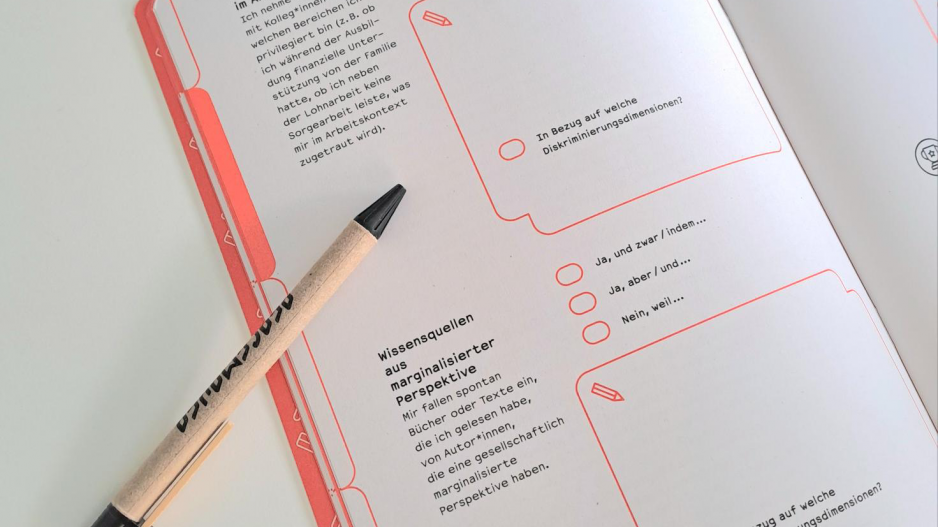 im
Ich nehme
mit Kolleg*innen
welchen Bereichen ich
privilegiert bin (z.B. ob
ich während der Ausbil–
dung finanzielle Unter–
stützung von der Familie
hatte, ob ich neben
der Lohnarbeit keine
Sorgearbeit leiste, was
mir im Arbeitskontext
zugetraut wird).
In Bezug auf welche
Diskriminierungsdimensionen?
Ja, und zwar / indem...
Ja, aber / und...
Nein, weil...
Wissensquellen
aus
marginalisierter
Perspektive
Mir fallen spontan
Bücher oder Texte ein,
die ich gelesen habe,
von Autor*innen,
die eine gesellschaftlich
marginalisierte
Perspektive haben.
zug auf welche
ungsdimensionen?